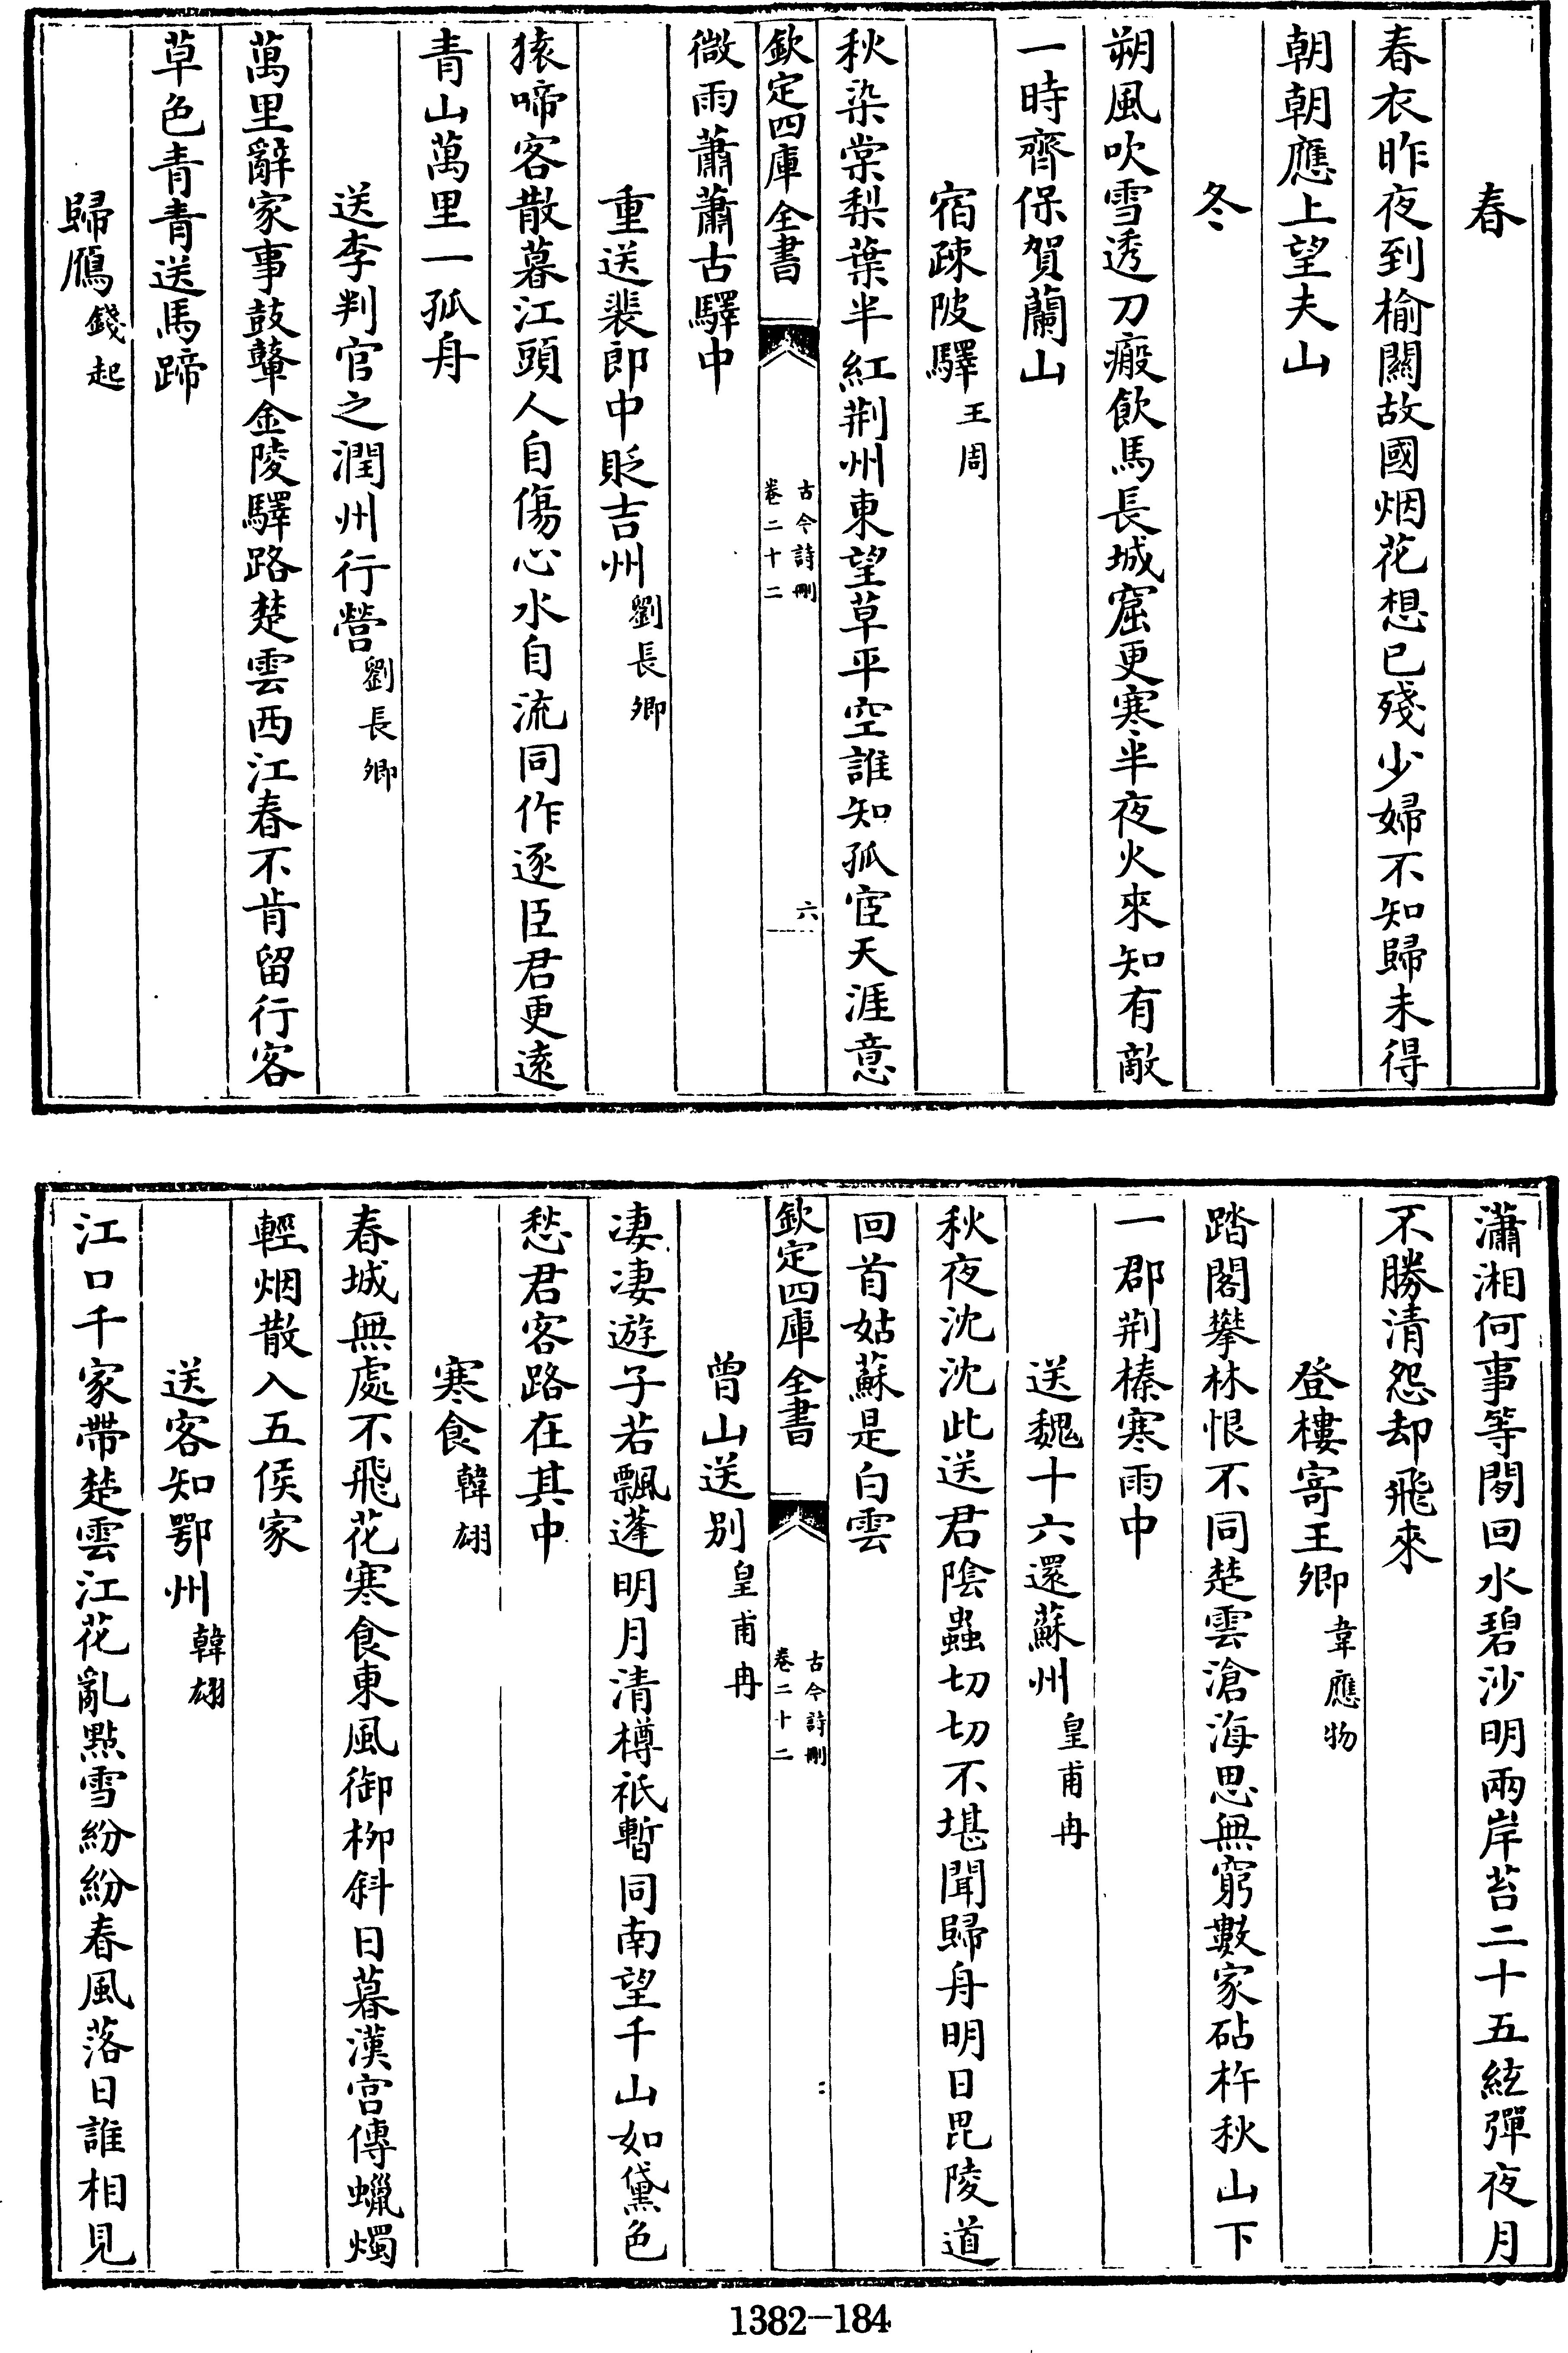 春
春衣昨夜到榆關故國烟花想已殘少婦不知歸未得
朝朝應上望夫山
冬
朔風吹雪透刀瘢飲馬長城窟更寒半夜火來知有敵
一時齊保賀蘭山
宿疎陂驛王周
秋染棠梨葉半紅荆州東望草平空誰知孤宦天涯意
欽定四庫全書
古今詩刪
卷二十二
六
微雨蕭蕭古驛中
重送裴郎中貶吉州劉長卿
猿啼客散暮江頭人自傷心水自流同作逐臣君更遠
青山萬里一孤舟
送李判官之潤州行營劉長卿
萬里辭家事鼓鼙金陵驛路楚雲西江春不肯留行客
草色青青送馬蹄
歸鴈錢起
瀟湘何事等閒回水碧沙明兩岸苔二十五絃彈夜月
不勝清怨却飛來
登樓寄王卿韋應物
踏閣攀林恨不同楚雲滄海思無窮數家砧杵秋山下
一郡荆榛寒雨中
送魏十六還蘇州皇甫冉
秋夜沈沈此送君陰蟲切切不堪聞歸舟明日毘陵道
回首姑蘇是白雲
欽定四庫全書
古今詩刪
卷二十二
曾山送别皇甫冉
凄凄遊子若飄蓬明月清樽祇暫同南望千山如黛色
愁君客路在其中
寒食韓翃
春城無處不飛花寒食東風御柳斜日暮漢宫傳蠟燭
輕烟散入五侯家
送客知鄂州韓翃
江口千家帶楚雲江花亂點雪紛紛春風落日誰相見
1382-184